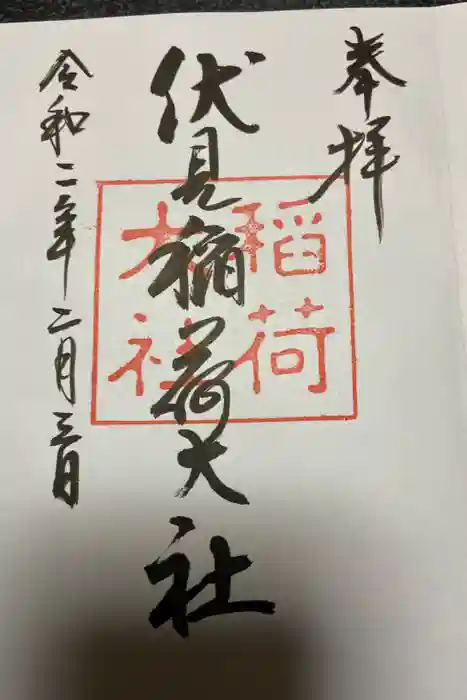 奉拝
稲荷
大社
伏見稲荷大社
令和二年二月三日